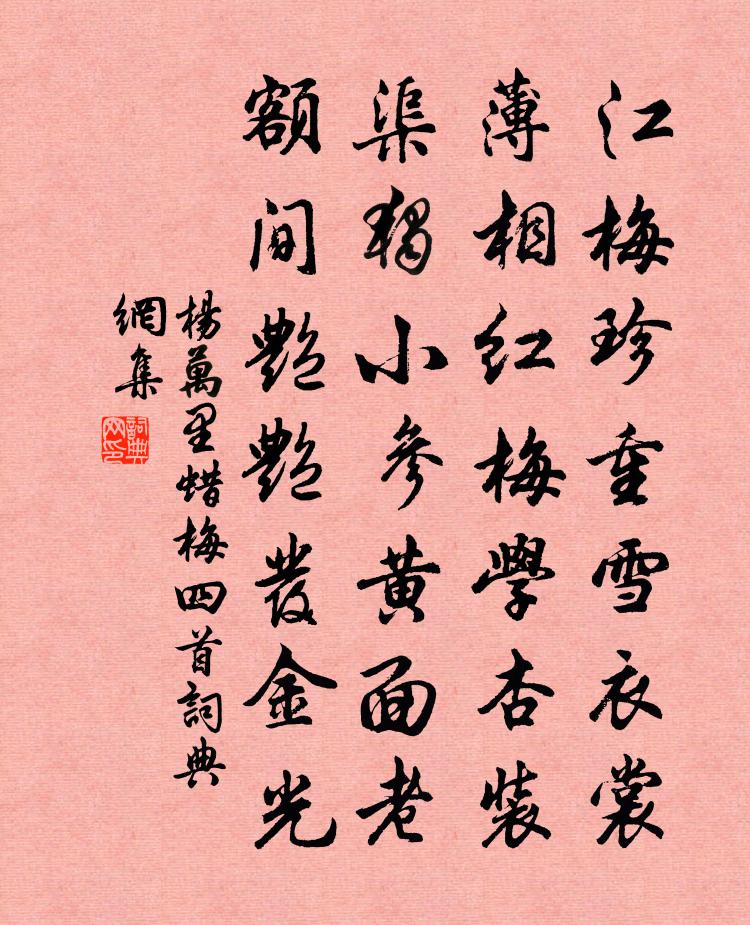 江梅珍重雪衣裳
薄相紅梅學杏裝
渠獨小參黃面老
額間艷艷發金光
楊萬里蜡梅四首詞典
網集
詞典
网印